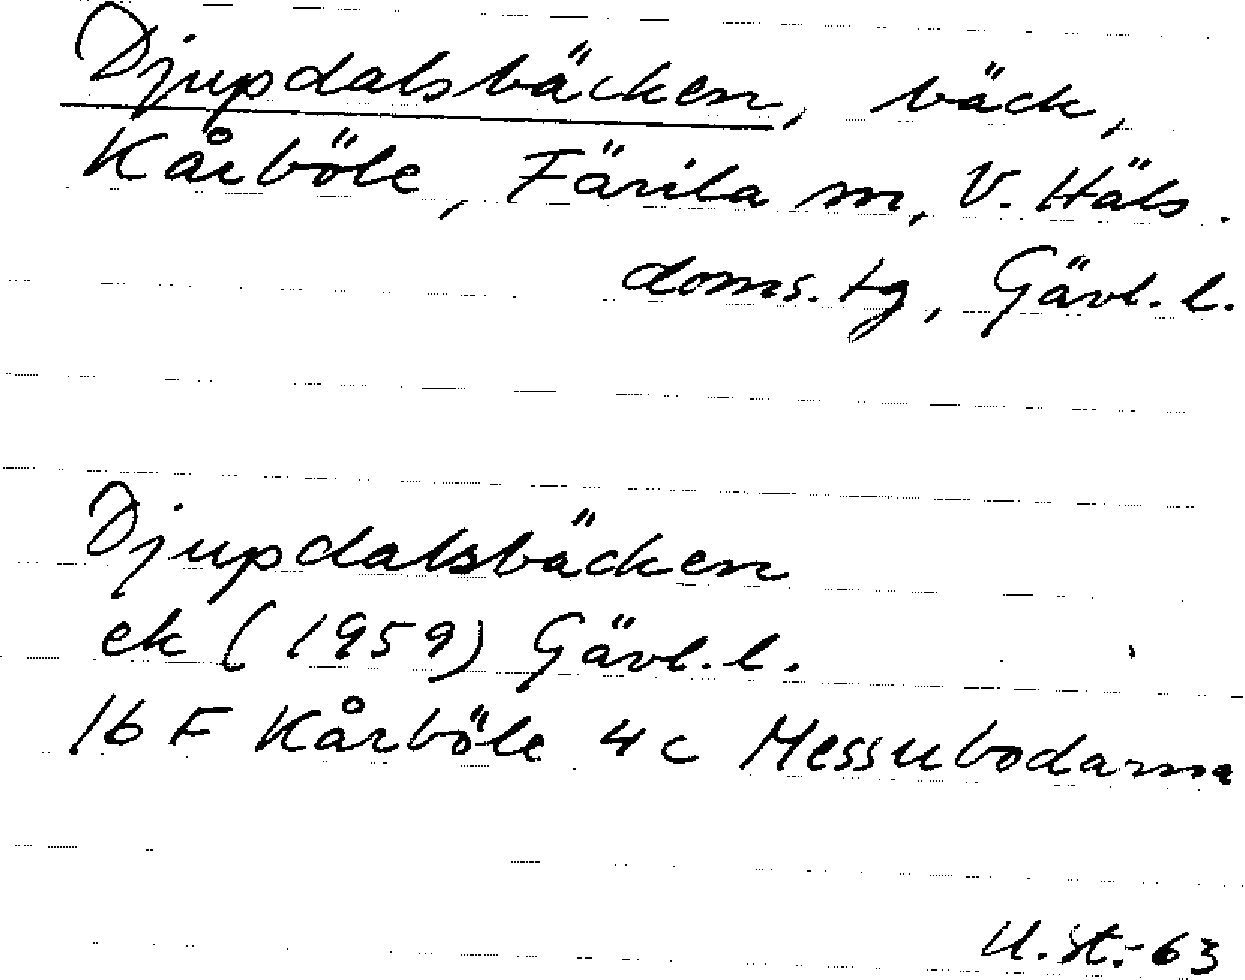 Djupdalsbäcken, bäck,
Kårböle, Färila sn, V. Häls.
doms.tg, Gävl.l.
Djupdalsbäcken
ek (1959) Gävl.l.
16 F Kårböle 4 c Messubodarna
U.St.-63